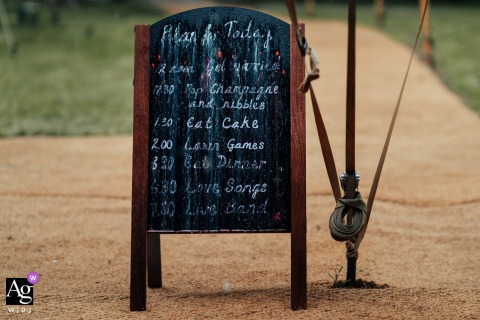 Plan for Today
12 noon Get married
12.30 Pop Champagne
and nibbles
1.30 Eat Cake
2.00 Lawn Games
Eat Dinner
Love Songs
Live Band
Ag
W
WPJA